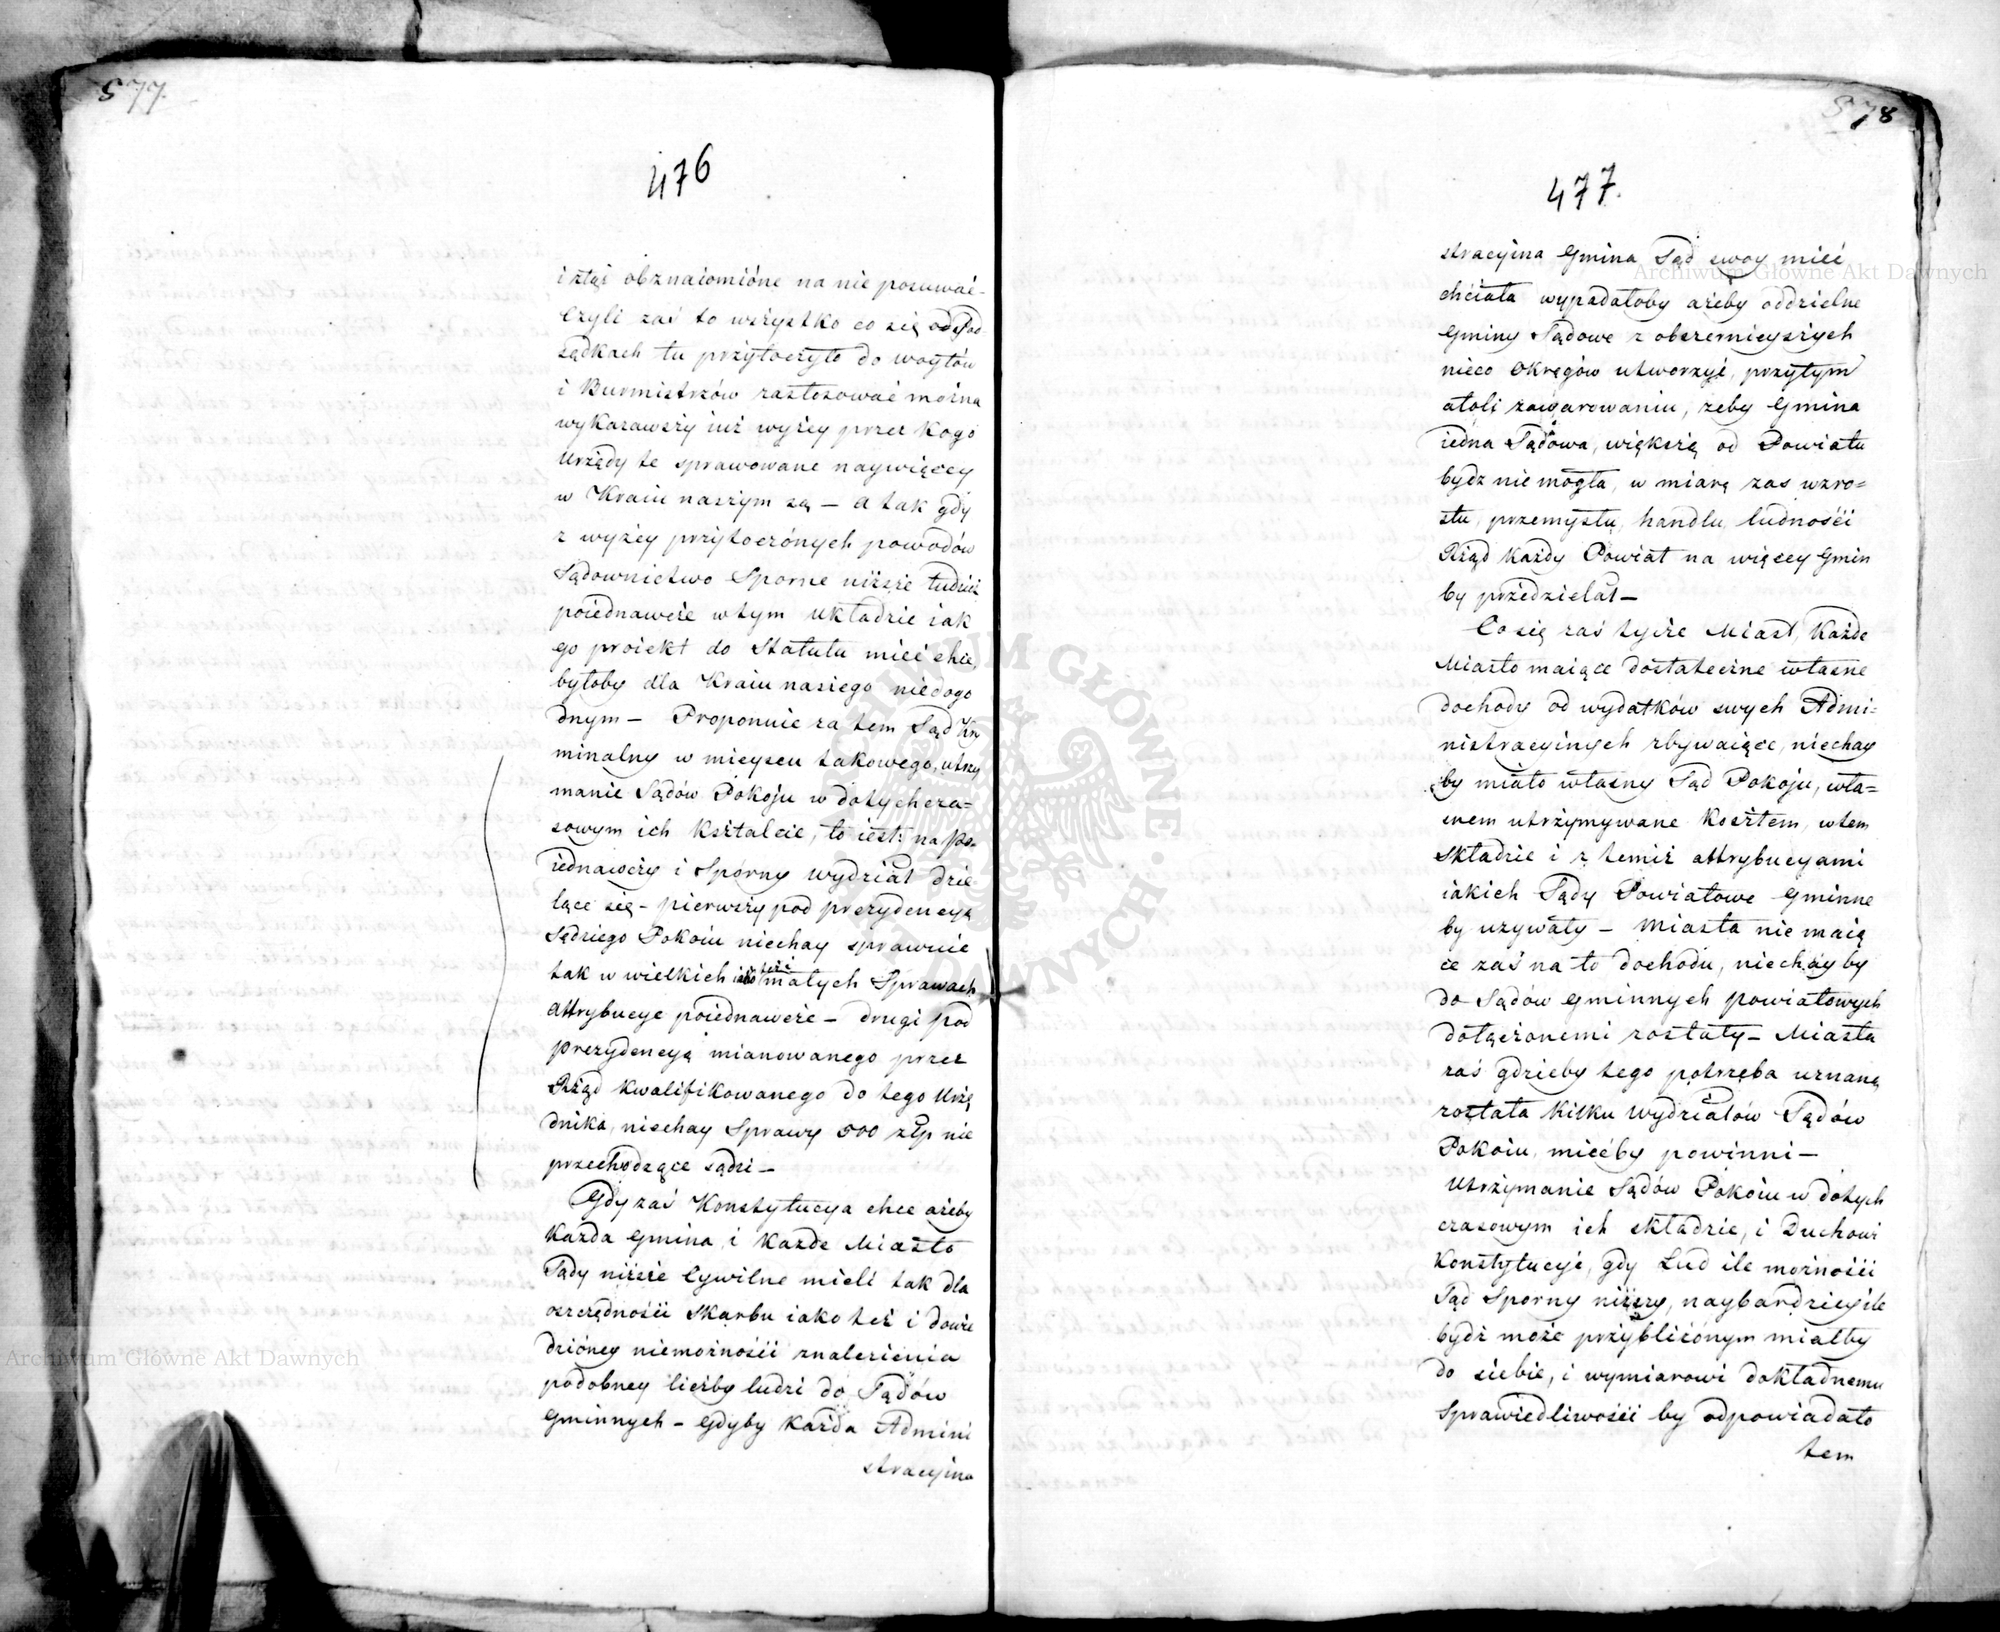 577.
476
i ztąd obznaiomióne na nie posuwać.
Czyli zaś to wszystko co się od Pod-
sądkach tu przytoczyło do woytów
i Burmistrzów zastosować można
wykazawszy iuż wyżey przez kogo
Urzędy te sprawowane naywięcey
w Kraiu naszym są — a tak gdy
z wyżey przytoczónych powodów
Sądownictwo Sporne niższe tudzież
poiednawcze w tym układzie iak
go proiekt do Statutu mieć chce,
byłoby dla Kraiu naszego niedogo
dnym — Proponuie za tem Sąd Kry
minalny w mieyscu takowego, utrzy
manie Sądów Pokoju w dotychcza=
sowym ich kształcie, to iest: na Po-
iednawczy i Sporny wydział dzie-
lące się — pierwszy pod prezydencyą
Sędziego Pokoiu niechay sprawuie
tak w wielkich iako też małych Sprawach
Attrybucye poiednawcze — drugi pod
prezydencyą mianowanego przez
Rząd kwalifikowanego do tego Urzę
dnika, niechay Sprawy 500 złp nie
przechodzące sądzi —
Gdy zaś Konstytucya chce ażeby
Każda Gmina i Każde Miasto
Sądy niższe Cywilne mieli tak dla
oszczędności Skarbu iako też i dowie
dzióney niemożności znalezienia
podobney liczby ludzi do Sądów
Gminnych — Gdyby Każda Admini
stracyina
578
477.
stracyina Gmina Sąd swoy mieć
chciała wypadałoby ażeby oddzielne
Gminy Sądowe z obszernieyszych
nieco Okręgów utworzyć, przytym
atoli zawarowaniu, żeby Gmina
iedna Sądowa, większą od Powiatu
bydz nie mogła, w miarę zas wzro=
stu, przemysłu, handlu, ludności
Rząd Każdy Powiat na więcey Gmin
by przedzielał —
Co się zaś tycze Miast, Każde
Miasto maiące dostateczne własne
dochody od wydatków swych Admi=
nistracyinych zbywaiące, niechay
by miało własny Sąd Pokoju, wła=
snem utrzymywane Kosztem, w tem
składzie i z temiż attrybucyami
iakich Sądy Powiatowe Gminne
by uzywały — Miasta nie maią
ce zaś na to dochodu, niechayby
do Sądów Gminnych powiatowych
dołączonemi zostały — Miasta
zaś gdzieby tego potrzeba uznaną
została kilku Wydziałów Sądów
Pokoiu, miećby powinni —
Utrzymanie Sądów Pokoiu w dotych
czasowym ich składzie, i Duchowi
Konstytucyi, gdy Lud ile możności
Sąd Sporny niższy, naybardziey ile
bydź może przybliżónym miałby
do siebie, i wymiarowi dokładnemu
Sprawiedliwości by odpowiadało
tem
Archiwum Główne Akt Dawnych
Archiwum Główne Akt Dawnych
ARCHIWUM GŁÓWNE AKT DAWNYCH